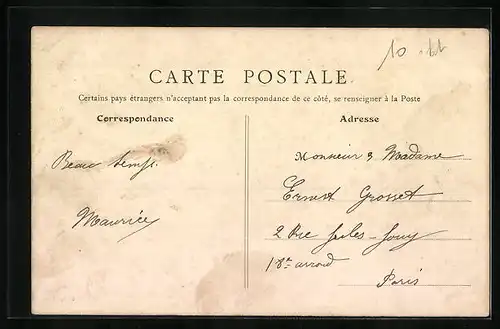 10
CARTE POSTALE
Certains pays étrangers n'acceptant pas la correspondance de ce côté, se renseigner à la Poste
Correspondance
Adresse
Beau temps.
Maurice
Monsieur & Madame
Ernest Grosset
2 Rue Jules-Jouy
18e arrond
Paris